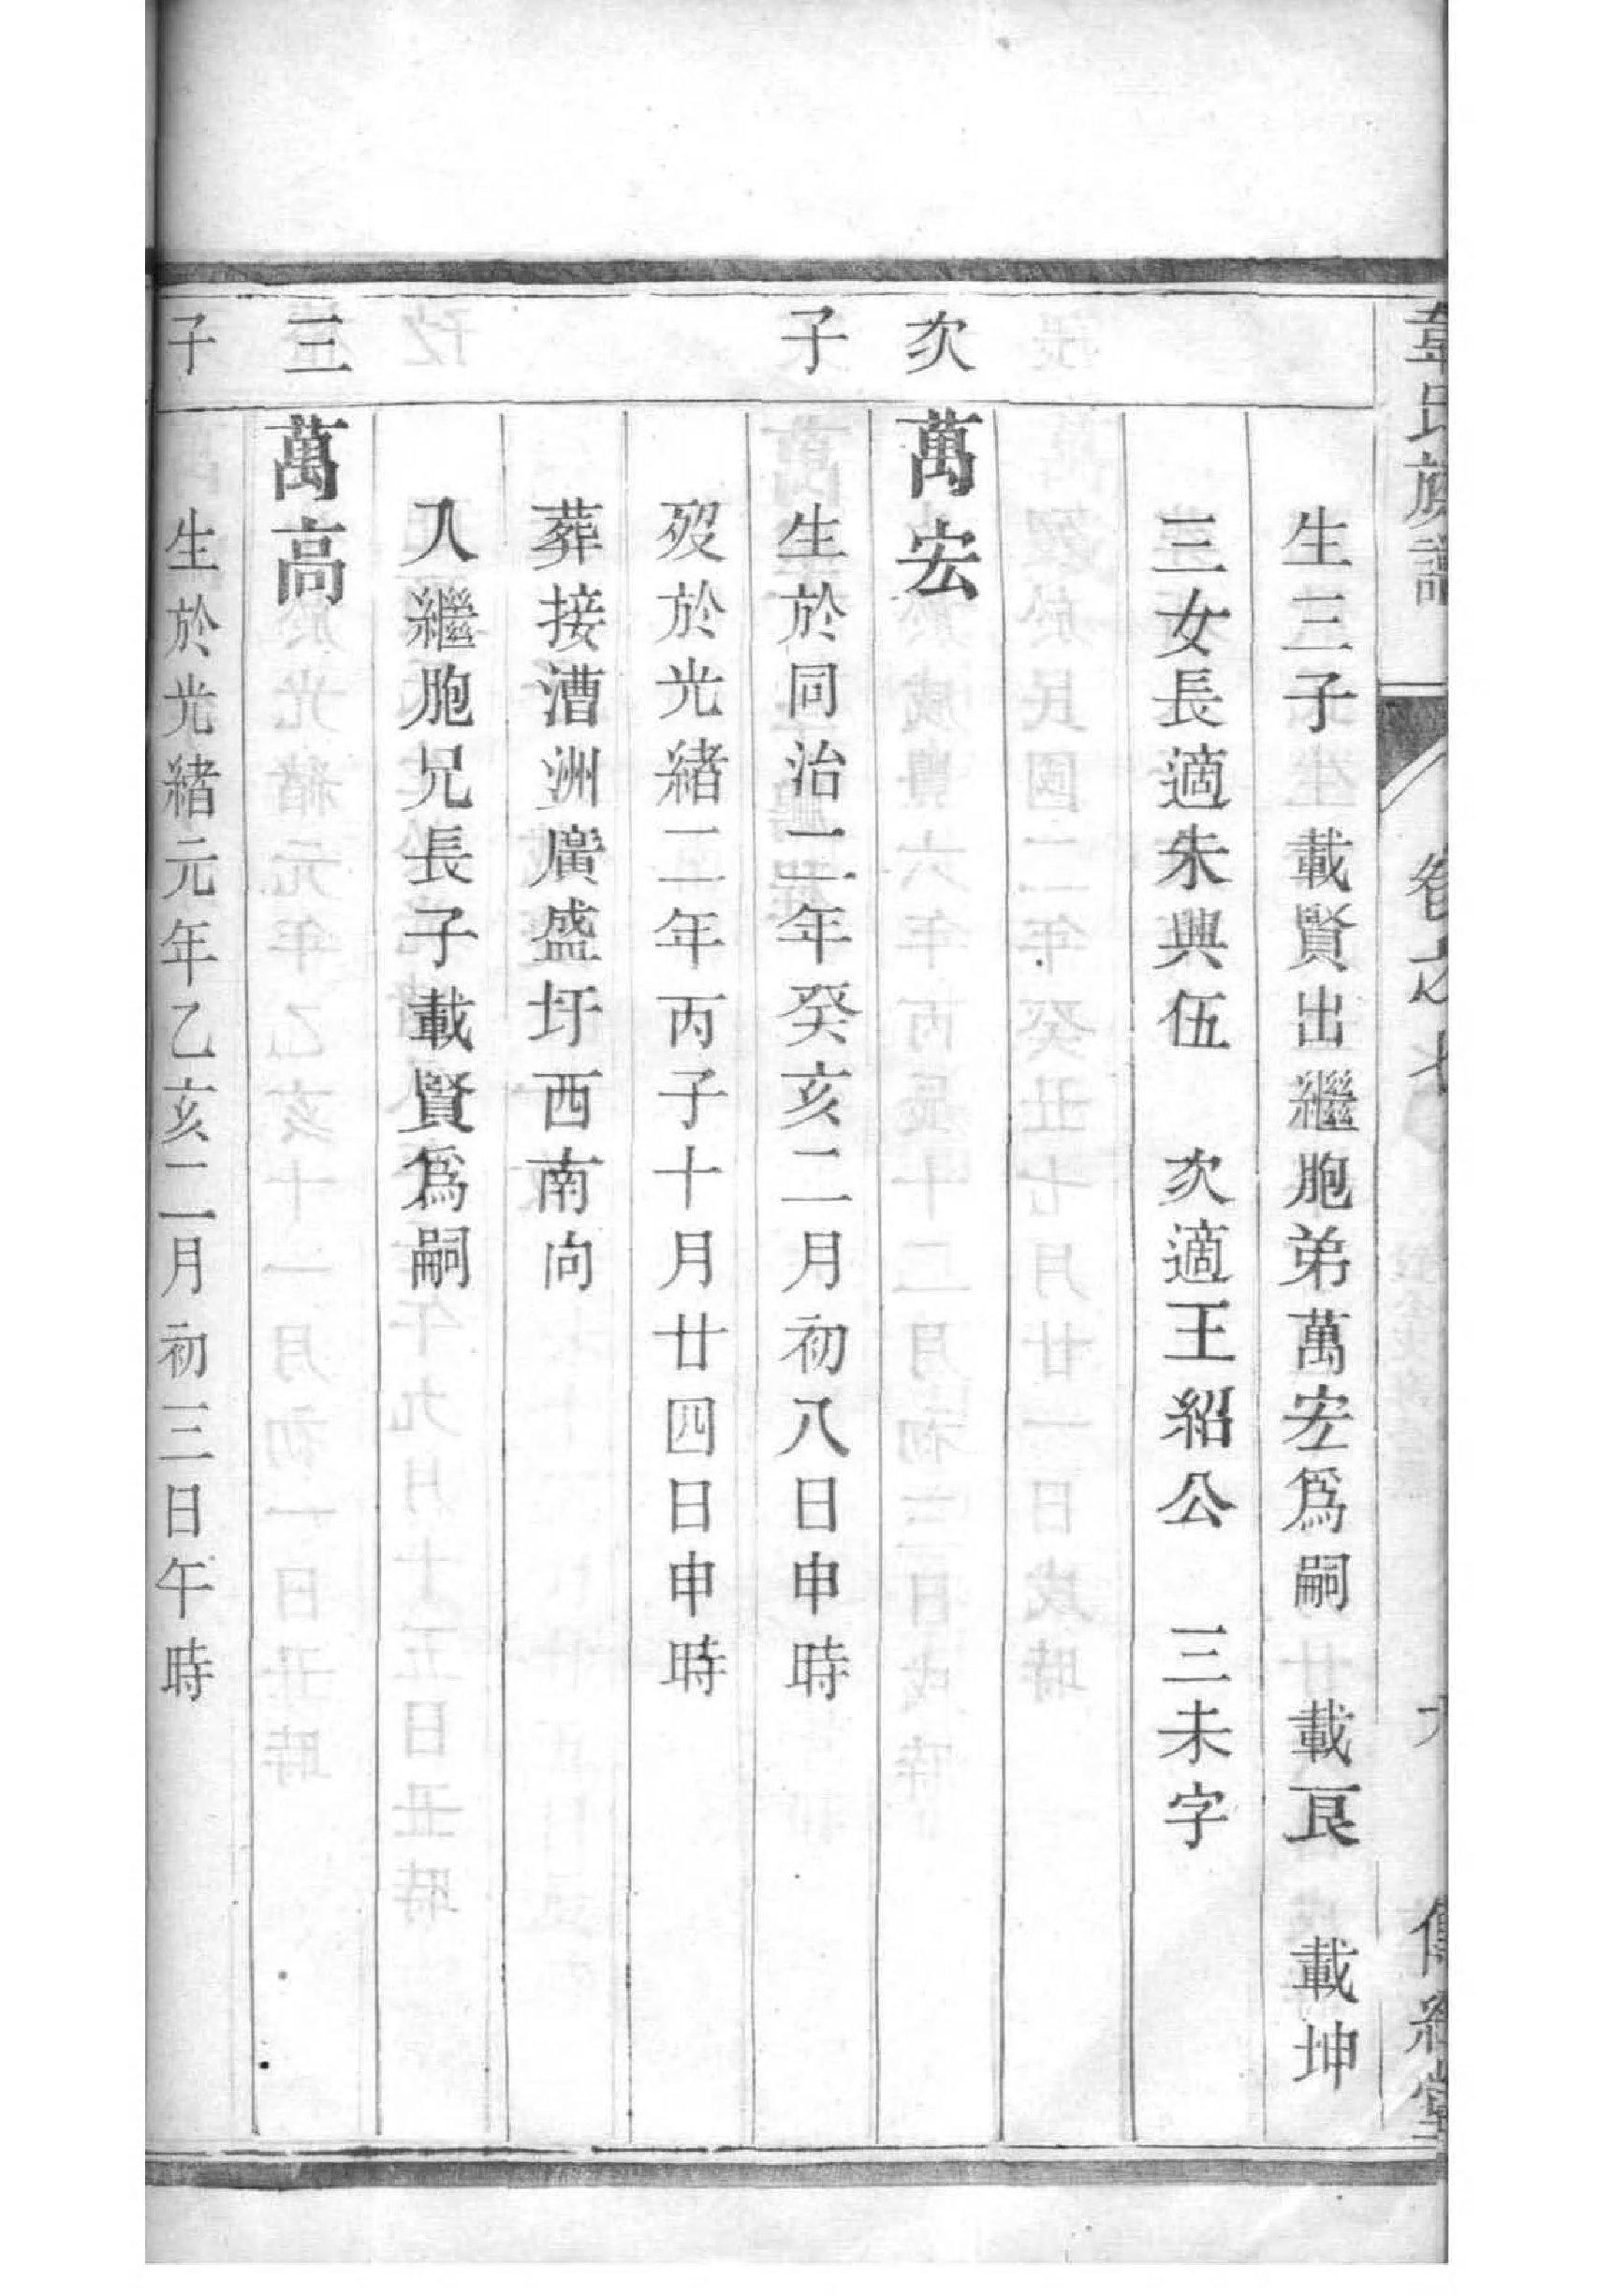 韋氏族譜 卷之七 九 傳經堂
生三子 載賢出繼胞弟萬宏爲嗣 載艮 載坤
三女長適朱興伍 次適王紹公 三未字
次子 萬宏
生於同治二年癸亥二月初八日申時
歿於光緒二年丙子十月廿四日申時
葬接漕洲廣盛圩西南向
入繼胞兄長子載賢爲嗣
三子 萬高
生於光緒元年乙亥二月初三日午時